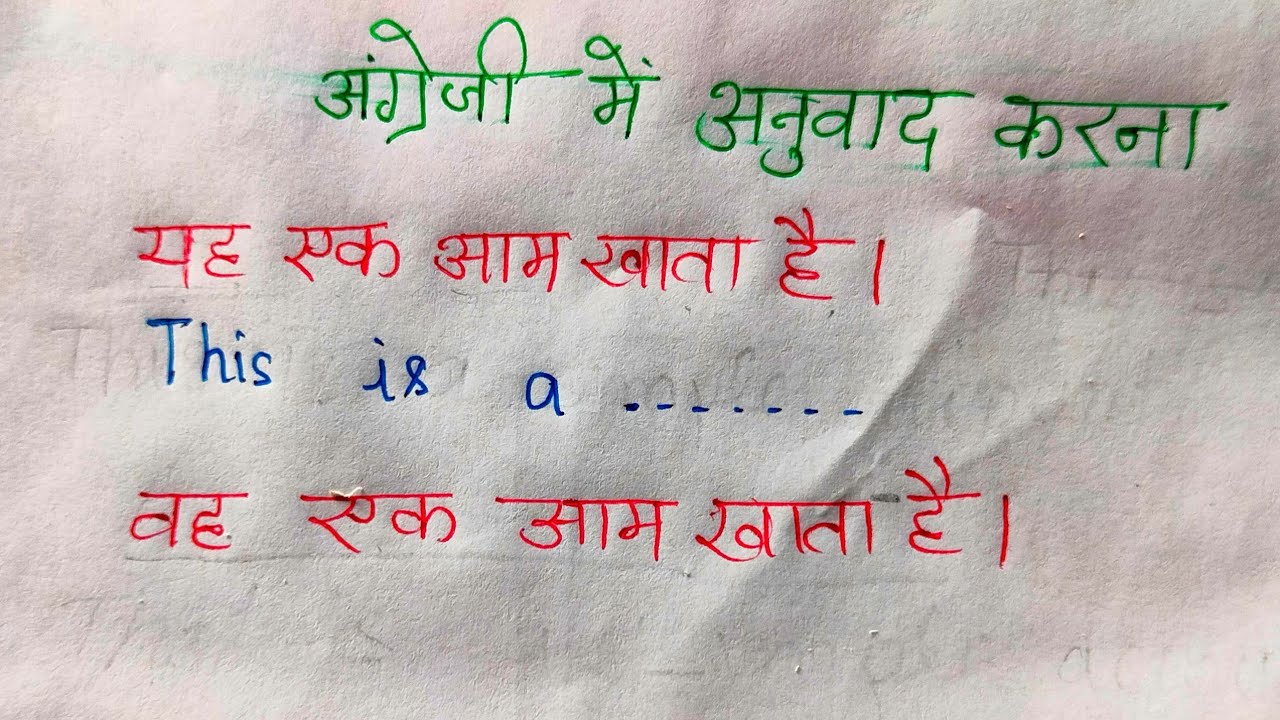 अंग्रेजी में अनुवाद करना
यह एक आम खाता है।
This is a .......
वह एक आम खाता है।